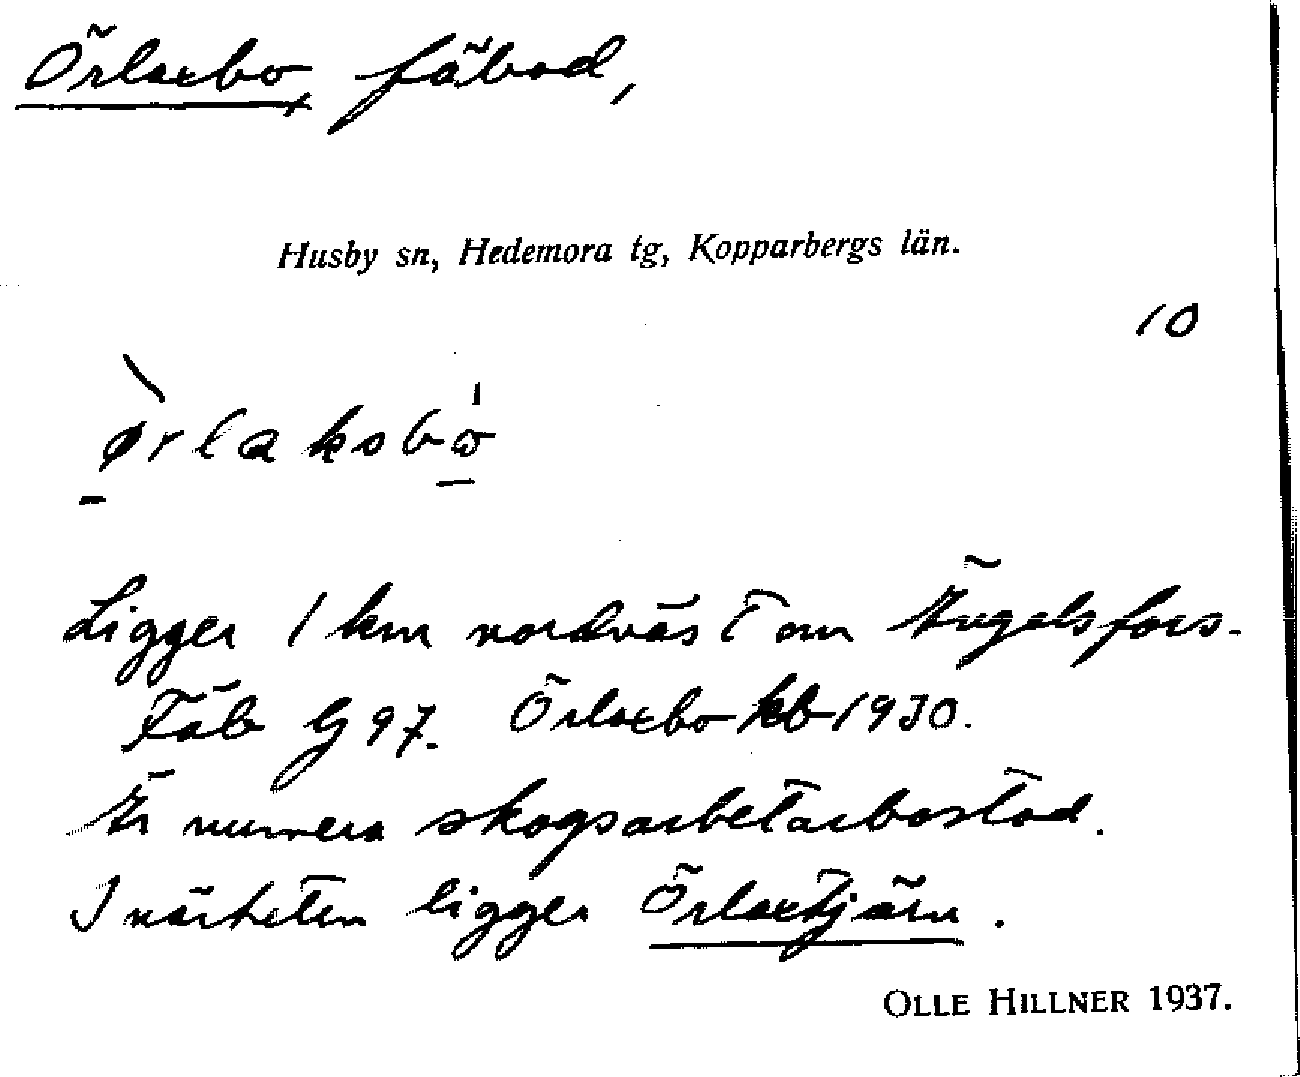 Örlaxbo, fäbod,
Husby sn, Hedemora tg, Kopparbergs län.
10
ørlaksbo
Ligger 1 km nordväst om Ängelsfors.
Fäb G 97. Örlaxbo kb 1930.
Är numera skogsarbetarbostad.
I närheten ligger Örlaxtjärn.
OLLE HILLNER 1937.